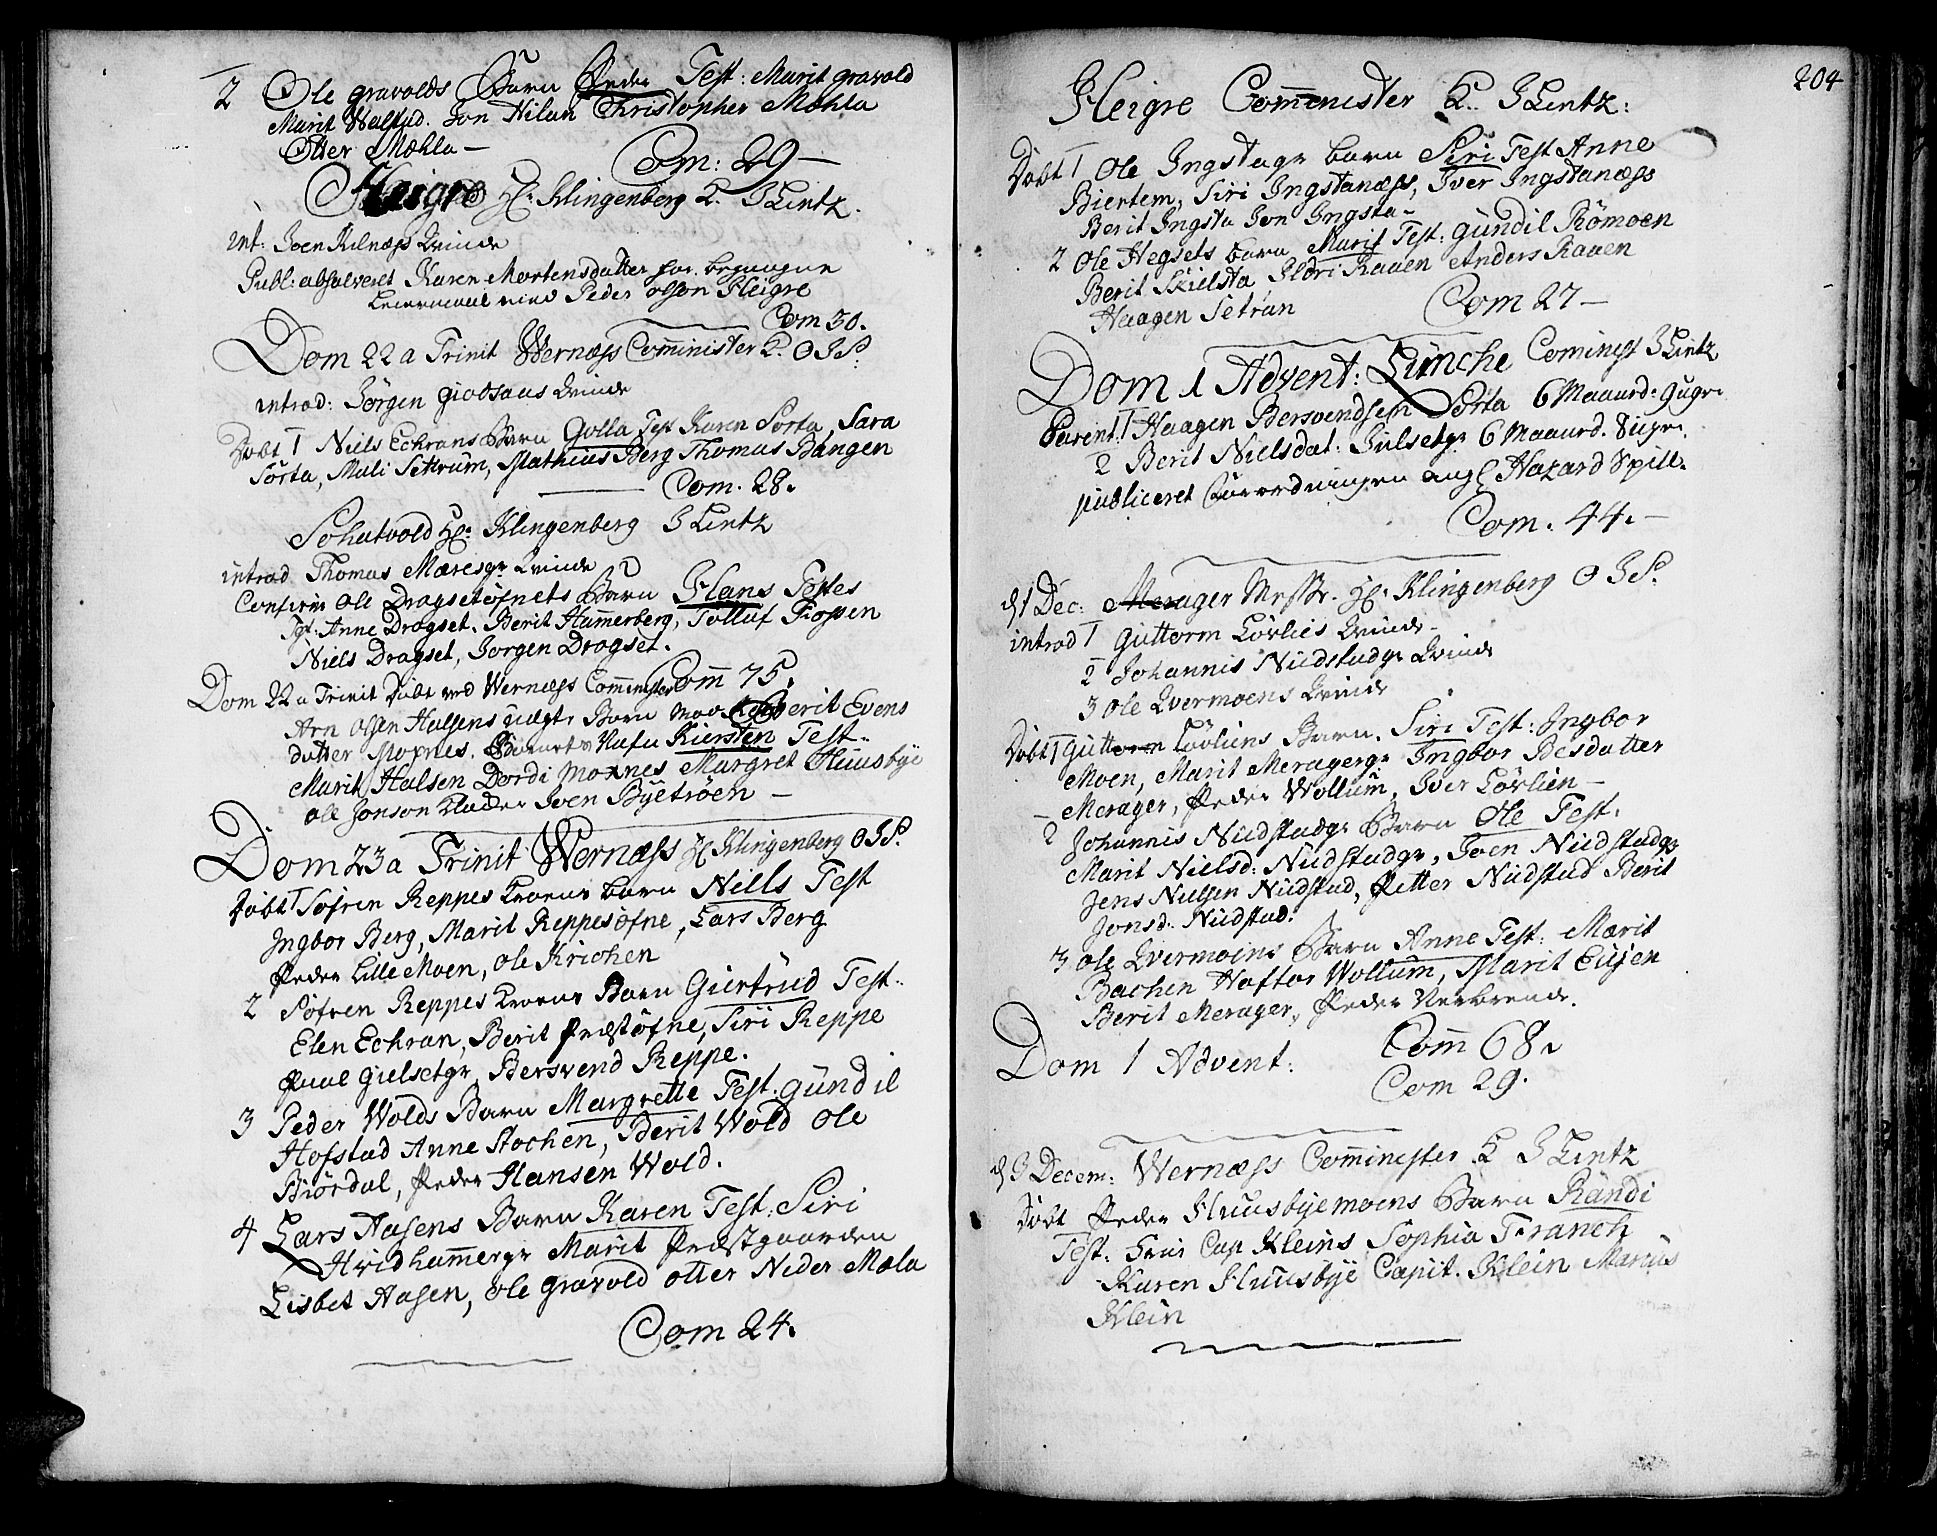 2 Ole gravolds Barn Peder Test: Marit gravold
Marit Walstad. Jon Hilan Christopher Mæhla
Otter Mæhla —
Com: 29 —
Heigre Hr: Klingenberg K. J Lintz.
int: Joen Kilnæss Kvinde
Publ: absolveret Karen Mortensdatter for begangne
Leiermaal med Peder Olson Heigre
Com 30.
Dom 22 a Trinit Wernæss Com̄inister K. O J S.
introd: Jörgen giodsaas Kvinde
Döbt 1 Niels Echrans Barn Golla Test Karen Sorta, Sara
Sorta, Mali Settrum, Mathias Berg Thomas Bangen
Com. 28.
Schatvold Hr: Klingenberg J Lintz
introd Thomas Mæresgr Kvinde
Confirm Ole Dragsetöfnets Barn Hans Testes
Tst: Anne Dragset, Berit Ham̄erberg, Tolluf Flossen
Niels Dragset, Jorgen Dragset.
Com̄ 75.
Dom 22 a Trinit Döbt ved Wernæss Com̄inister
Arn Olsen Halsens uægte Barn Berit Evens
datter Moxnes. Barnets Nafn Kiersten Test:
Marit Halsen Dordi Moxnes Margret Huusbye
Ole Jonson Kladder Joen Byetröen —
Dom 23 a Trinit Wernæss Hr Klingenberg O J S.
Döbt 1 Söfren Reppes Barn Niells Test
Ingbor Berg, Marit Reppesöfne, Lars Berg
Peder Lille Moen, Ole Krichen
2 Söfren Reppes Barn Giertrud Test:
Elen Echran, Berit Præstöfne, Siri Reppe
Paul gielsetgr, Bersvend Reppe.
3 Peder Wolds Barn Margrette Test: gundil
Hofstad Anne Stochen, Berit Wold Ole
Biördal, Peder Hansen Wold.
4 Lars Aasens Barn Karen Test: Siri
Hvidham̄ergr Marit Præstgaarden
Lisbet Aasen, Ole gravold Otter Neder Mæla
Com 24.
204
Heigre Com̄inister K. J Lintz:
Döbt 1 Ole Ingstagr barn Siri Test Anne
Biertem, Siri Ingstanæss, Iver Ingstanæss
Berit Ingsta Jon Ingsta —
2 Ole Hegsets barn Marit Test: gundil Römoen
Berit Skielsta, Ildri Raaen Anders Raaen
Haagen Setran
Com 27 —
Dom 1 Advent: Lunche Cominist J Lintz
Parent. 1 Haagen Bersvendsen Sorta 6 Maaned: Gugr
2 Berit Nielsdat: Gulsetgr 6 Maaned.
publiceret forordningen ang: Hazard Spill.
Com. 44. —
d 1 Dec: Merager Hr: Klingenberg O J S.
introd 1 Guttorm Lövlies Kvinde —
2 Johannis Nudstadgr Kvinde
3 Ole Qvermoens Kvinde
Döbt 1 Guttorm Lövliens Barn. Siri Test: Ingbor
Moen, Marit Meragergr Ingbor Besdatter
Merager, Peder Wollum, Iver Lövlien —
2 Johannis Nudstadgr Barn Ole Test:
Marit Nielsd: Nudstadgr, Joen Nudstadgr
Jens Nielsen Nudstad, Petter Nudstad Berit
Jonsd: Nudstad:
3 Ole Qvermoens Barn Anne Test: Marit
Bachen Haftor Wollum, Marit Eisen
Berit Merager, Peder Verbrende.
Com̄ 68.
Dom 1 Advent:
Com 29.
d 3 Decem: Wernæss Com̄inister K J Lintz
Döbt Peder Huusbyemoens Barn Randi
Test: Frue Cap Kleins Sophia Tranch
Karen Huusbye Capit. Klein Marius
Klein